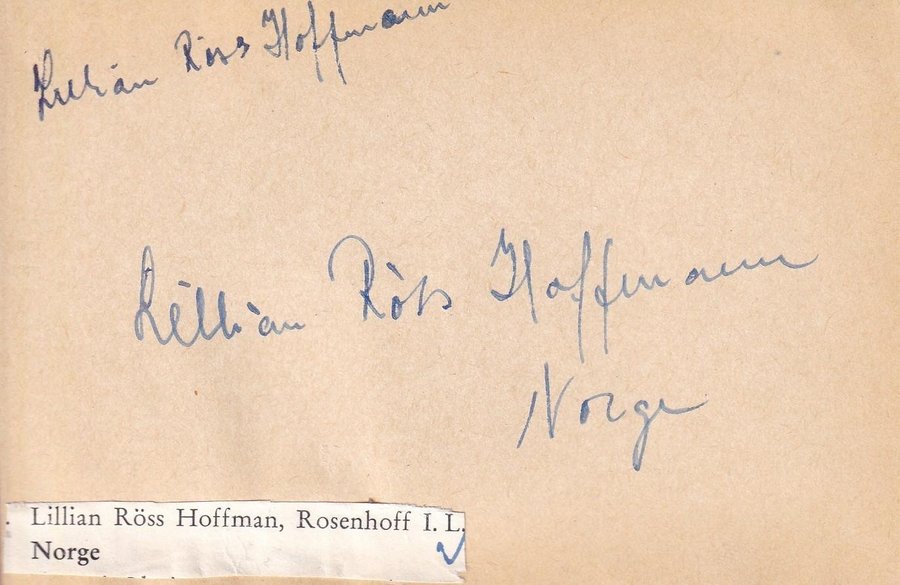 Lillian Röss Hoffmann
Lillian Röss Hoffmann
Norge
. Lillian Röss Hoffman, Rosenhoff I. L.
Norge